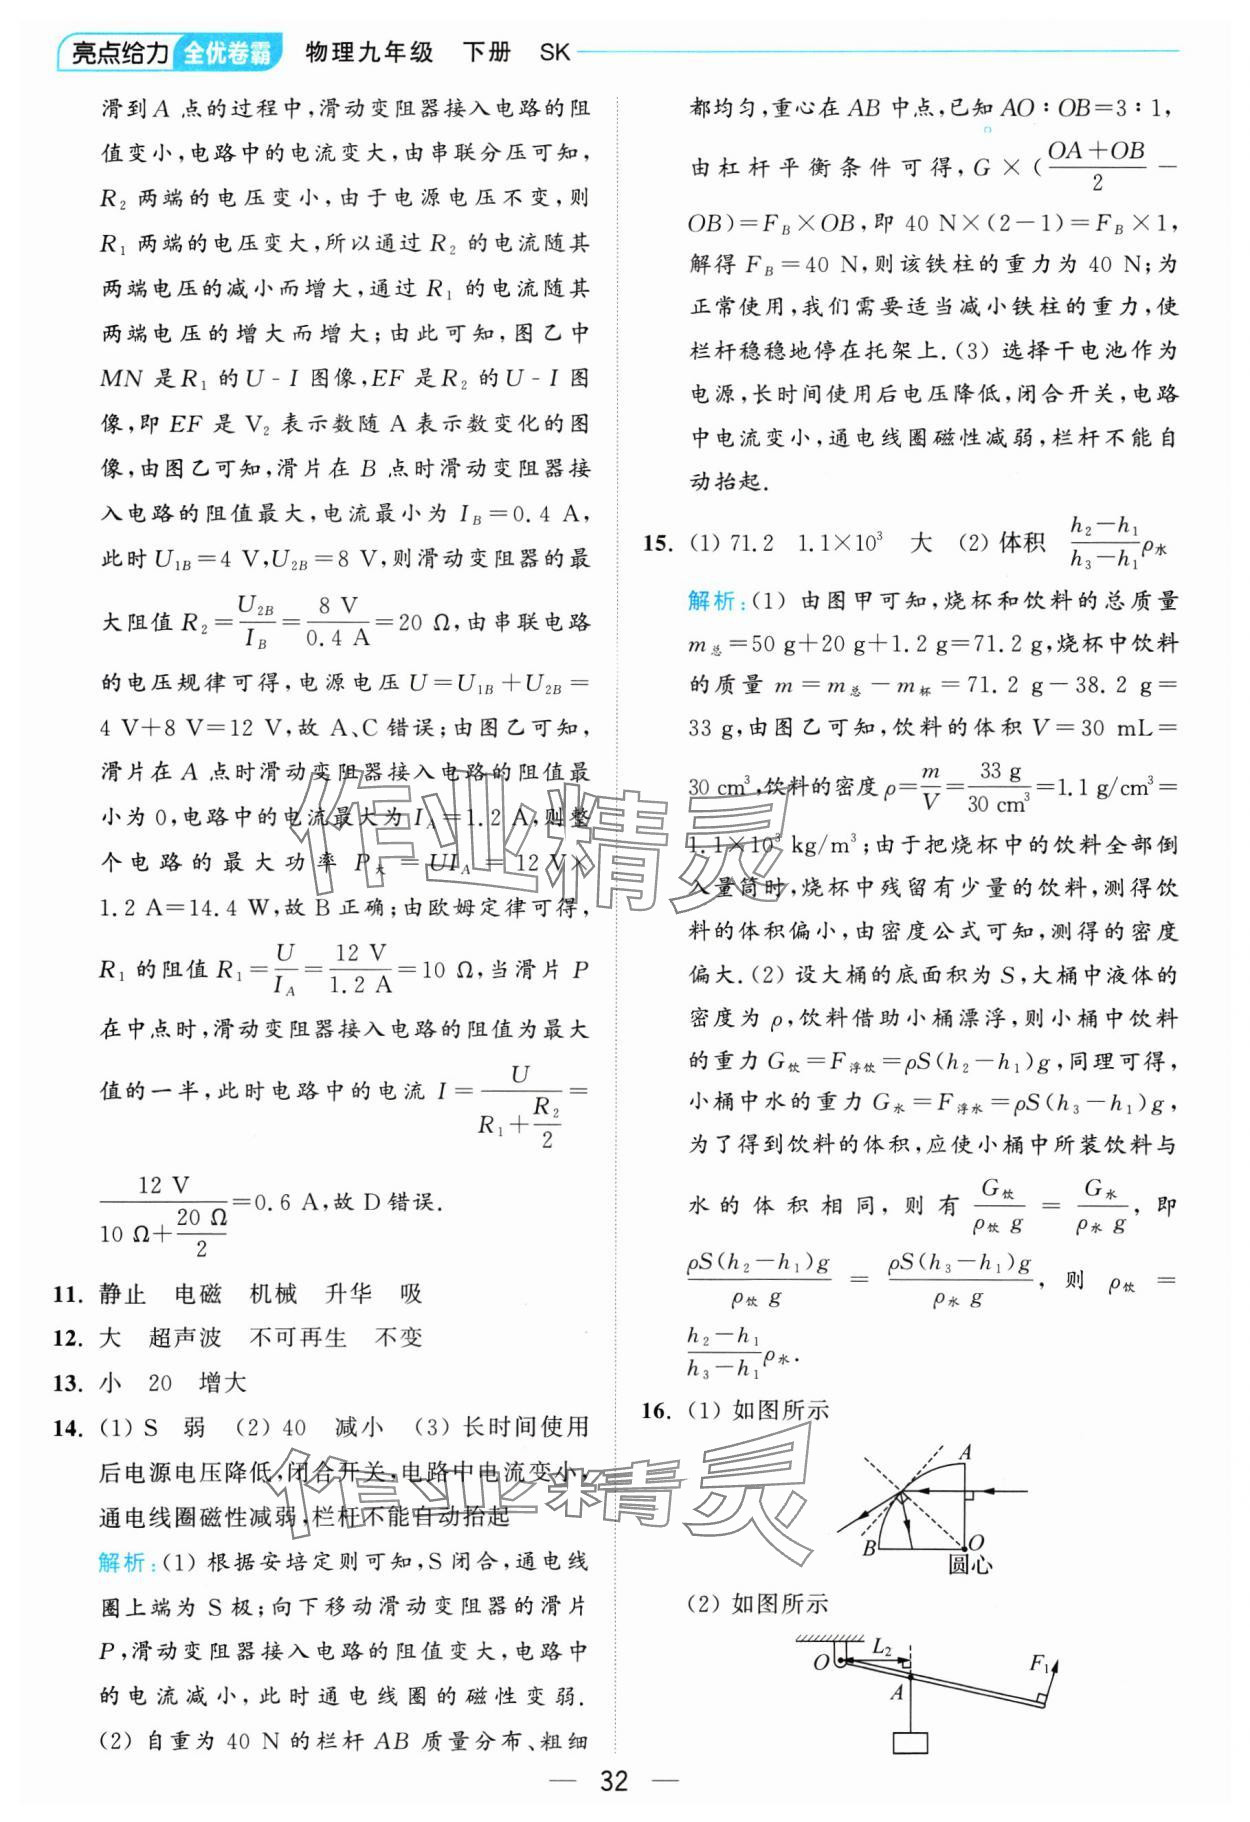 亮点给力 全优卷霸 物理九年级 下册 SK
滑到 A 点的过程中,滑动变阻器接入电路的阻
值变小,电路中的电流变大,由串联分压可知,
R₂ 两端的电压变小,由于电源电压不变,则
R₁ 两端的电压变大,所以通过 R₂ 的电流随其
两端电压的减小而增大,通过 R₁ 的电流随其
两端电压的增大而增大;由此可知,图乙中
MN 是 R₁ 的 U-I 图像,EF 是 R₂ 的 U-I 图
像,即 EF 是 V₂ 表示数随 A 表示数变化的图
像,由图乙可知,滑片在 B 点时滑动变阻器接
入电路的阻值最大,电流最小为 I_B=0.4 A,
此时 U₁B=4 V,U₂B=8 V,则滑动变阻器的最
大阻值 R₂=U₂B/I_B=8 V/0.4 A=20 Ω,由串联电路
的电压规律可得,电源电压 U=U₁B+U₂B=
4 V+8 V=12 V,故 A、C 错误;由图乙可知,
滑片在 A 点时滑动变阻器接入电路的阻值最
小为 0,电路中的电流最大为 I_A=1.2 A,则整
个电路的最大功率 P大=UI_A=12 V×
1.2 A=14.4 W,故 B 正确;由欧姆定律可得,
R₁ 的阻值 R₁=U/I_A=12 V/1.2 A=10 Ω,当滑片 P
在中点时,滑动变阻器接入电路的阻值为最大
值的一半,此时电路中的电流 I=U/(R₁+R₂/2)=
12 V/(10 Ω+20 Ω/2)=0.6 A,故 D 错误.
11. 静止 电磁 机械 升华 吸
12. 大 超声波 不可再生 不变
13. 小 20 增大
14. (1) S 弱 (2) 40 减小 (3) 长时间使用
后电源电压降低,闭合开关,电路中电流变小,
通电线圈磁性减弱,栏杆不能自动抬起
解析:(1) 根据安培定则可知,S 闭合,通电线
圈上端为 S 极;向下移动滑动变阻器的滑片
P,滑动变阻器接入电路的阻值变大,电路中
的电流减小,此时通电线圈的磁性变弱.
(2) 自重为 40 N 的栏杆 AB 质量分布、粗细
都均匀,重心在 AB 中点,已知 AO∶OB=3∶1,
由杠杆平衡条件可得,G×((OA+OB)/2−
OB)=F_B×OB,即 40 N×(2−1)=F_B×1,
解得 F_B=40 N,则该铁柱的重力为 40 N;为
正常使用,我们需要适当减小铁柱的重力,使
栏杆稳稳地停在托架上.(3) 选择干电池作为
电源,长时间使用后电压降低,闭合开关,电路
中电流变小,通电线圈磁性减弱,栏杆不能自
动抬起.
15. (1) 71.2 1.1×10³ 大 (2) 体积 (h₂−h₁)/(h₃−h₁)ρ水
解析:(1) 由图甲可知,烧杯和饮料的总质量
m总=50 g+20 g+1.2 g=71.2 g,烧杯中饮料
的质量 m=m总−m杯=71.2 g−38.2 g=
33 g,由图乙可知,饮料的体积 V=30 mL=
30 cm³,饮料的密度 ρ=m/V=33 g/30 cm³=1.1 g/cm³=
1.1×10³ kg/m³;由于把烧杯中的饮料全部倒
入量筒时,烧杯中残留有少量的饮料,测得饮
料的体积偏小,由密度公式可知,测得的密度
偏大.(2) 设大桶的底面积为 S,大桶中液体的
密度为 ρ,饮料借助小桶漂浮,则小桶中饮料
的重力 G饮=F浮饮=ρS(h₂−h₁)g,同理可得,
小桶中水的重力 G水=F浮水=ρS(h₃−h₁)g,
为了得到饮料的体积,应使小桶中所装饮料与
水的体积相同,则有 G饮/(ρ饮 g)=G水/(ρ水 g),即
ρS(h₂−h₁)g/(ρ饮 g)=ρS(h₃−h₁)g/(ρ水 g),则 ρ饮=
(h₂−h₁)/(h₃−h₁)ρ水.
16. (1) 如图所示
A
B
O
圆心
(2) 如图所示
O
L₂
A
F₁
32
作业精灵
作业精灵